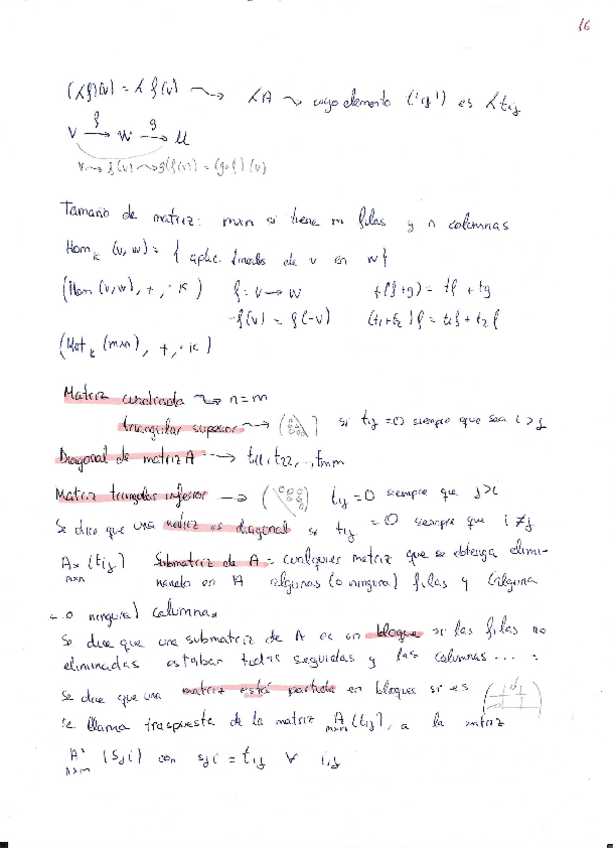 16
(λf)(v) = λ f(v) ⤳ λA ⤳ cuyo elemento ('ij') es λtij
V —f→ W —g→ U
v → f(v) ⤳ g(f(v)) = (g∘f)(v)
Tamaño de matriz: mxn si tiene m filas y n columnas
Homk (v,w) = { aplic. lineales de v en w}
(Hom (v,w), +, ·k) f: v → w t(f+g) = tf + tg
-f(v) = f(-v) (t1+t2)f = t1f + t2f
(Matk (mxn), +, ·k)
Matriz cuadrada ⤳ n = m
triangular superior ⤳ si tij = 0 siempre que sea i > j
Diagonal de matriz A → t11, t22, .., tmm
Matriz triangular inferior → tij = 0 siempre que j > i
Se dice que una matriz es diagonal si tij = 0 siempre que i ≠ j
A= (tij) Submatriz de A = cualquier matriz que se obtenga elimi-
mxn nando en A algunas (o ninguna) filas y (alguna
o ninguna) columna.
Se dice que una submatriz de A es un bloque si las filas no
eliminadas estaban todas seguidas y las columnas ... =
Se dice que una matriz está partida en bloques si es
Se llama traspuesta de la matriz A mxn (tij), a la matriz
At nxm (sji) con sji = tij ∀ i,j